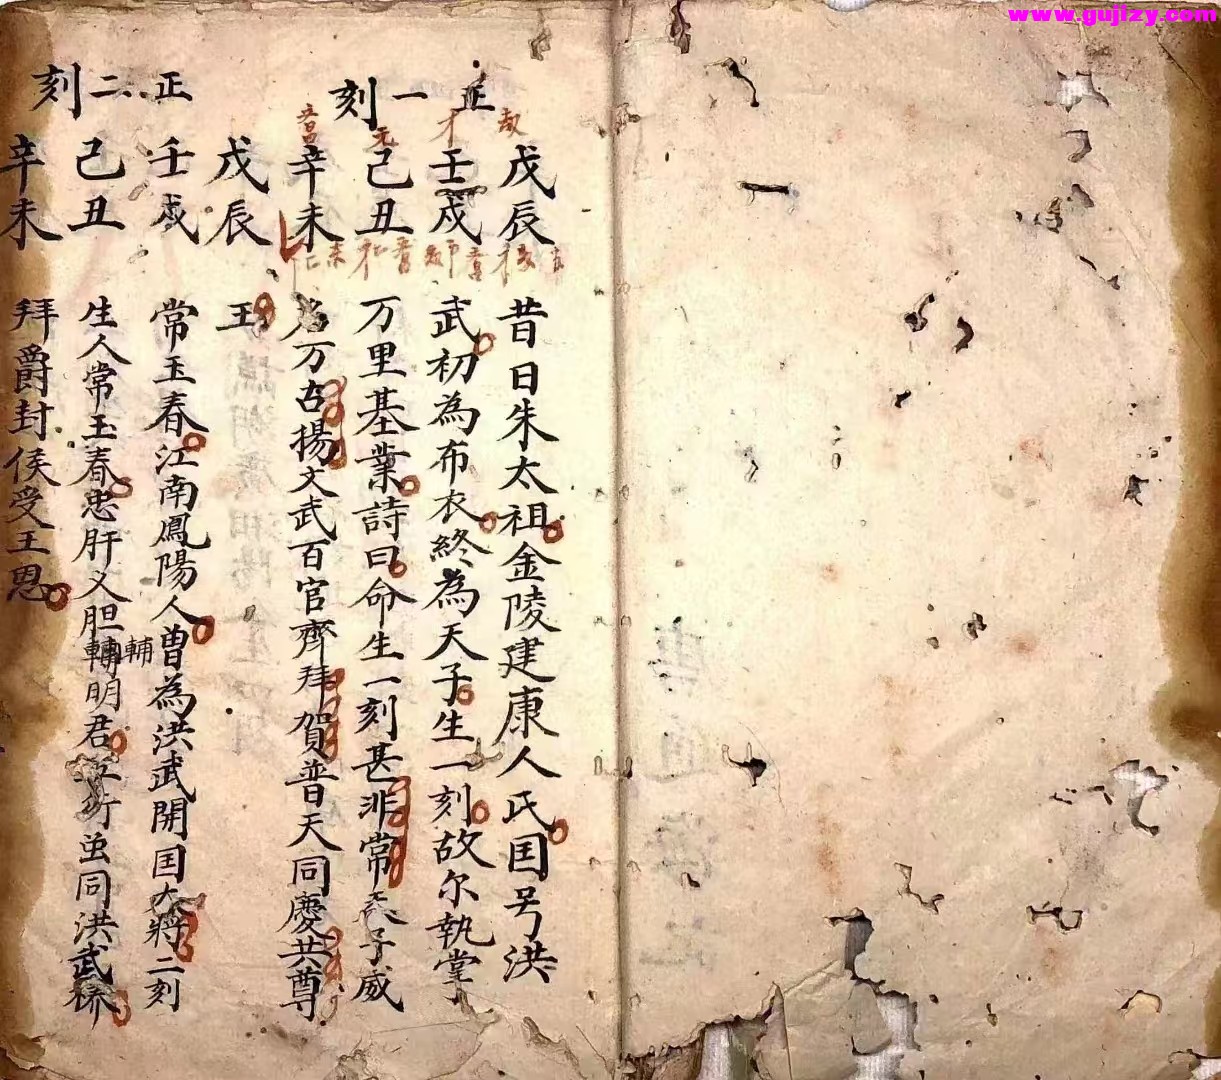 www.gujizy.com
正一刻
戊辰
壬戌
己丑
辛未
昔日朱太祖金陵建康人氏囯号洪
武初為布衣終為天子生一刻故尔執掌
万里基業詩曰命生一刻甚非常天子威
名万古揚文武百官齊拜賀普天同慶共尊
王
正二刻
戊辰
壬戌
己丑
辛未
常玉春江南鳳陽人曽為洪武開囯大將二刻
生人常玉春忠肝义胆輔明君虽同洪武
拜爵封侯受王恩
輔